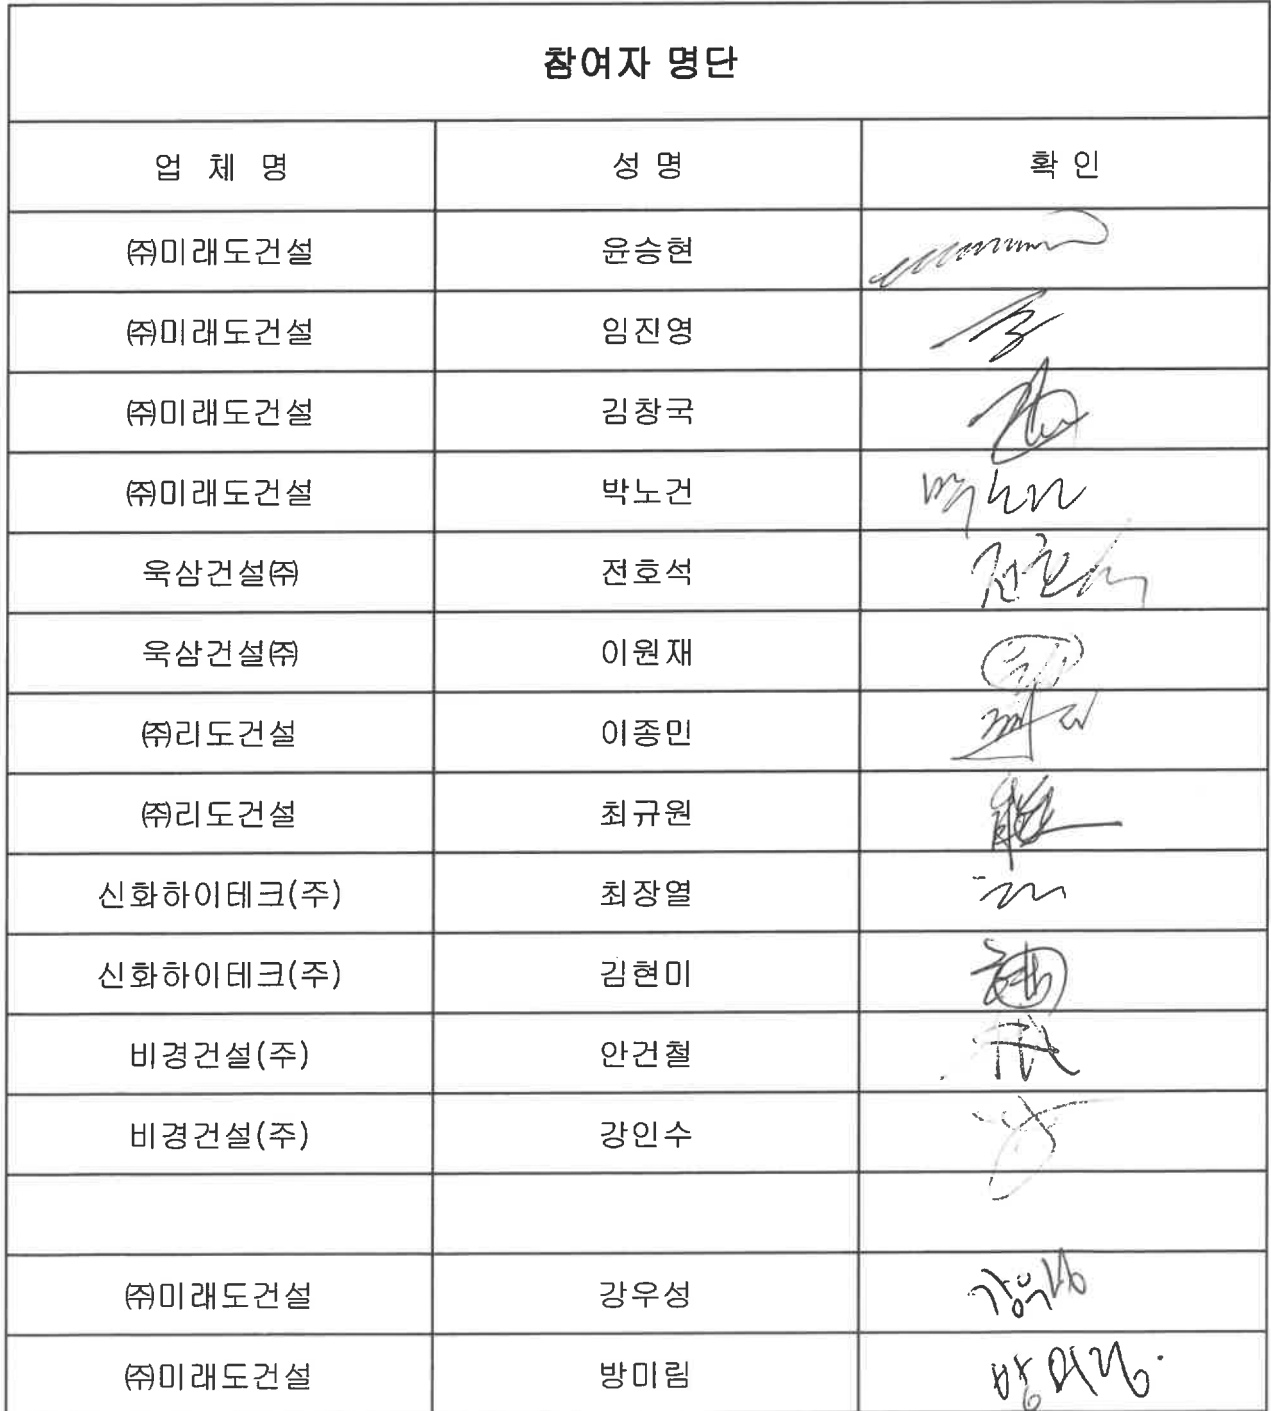 참여자 명단
업 체 명 성 명 확 인
㈜미래도건설 윤승현
㈜미래도건설 임진영
㈜미래도건설 김창국
㈜미래도건설 박노건 박노건
욱삼건설㈜ 전호석 전호석
욱삼건설㈜ 이원재
㈜리도건설 이종민
㈜리도건설 최규원
신화하이테크(주) 최장열
신화하이테크(주) 김현미
비경건설(주) 안건철
비경건설(주) 강인수
㈜미래도건설 강우성 강우성
㈜미래도건설 방미림 방미림